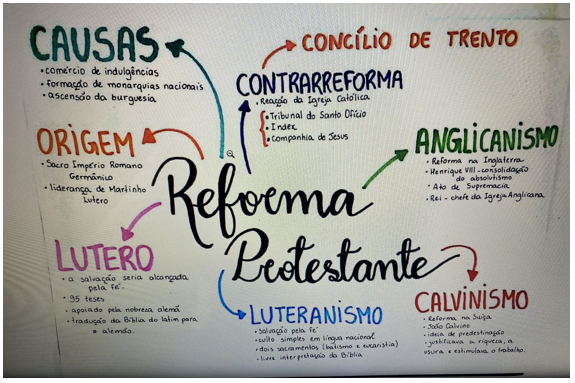 CAUSAS
• comércio de indulgências
• formação de monarquias nacionais
• ascensão da burguesia
CONCÍLIO DE TRENTO
CONTRARREFORMA
• Reação da Igreja Católica
• Tribunal do Santo Ofício
• Index
• Companhia de Jesus
ORIGEM
• Sacro Império Romano
Germânico
• liderança de Martinho
Lutero
ANGLICANISMO
• Reforma na Inglaterra
• Henrique VIII - consolidação
do absolutismo
• Ato de Supremacia
• Rei - chefe da Igreja Anglicana
Reforma
Protestante
LUTERO
• a salvação seria alcançada
pela fé.
• 95 teses
• apoiado pela nobreza alemã
• tradução da Bíblia do latim para
o alemão.
LUTERANISMO
• salvação pela fé
• culto simples em língua nacional
• dois sacramentos (batismo e eucaristia)
• livre interpretação da Bíblia
CALVINISMO
• Reforma na Suíça
• João Calvino
• ideia de predestinação
• justificava a riqueza, a
usura e estimulava o trabalho.